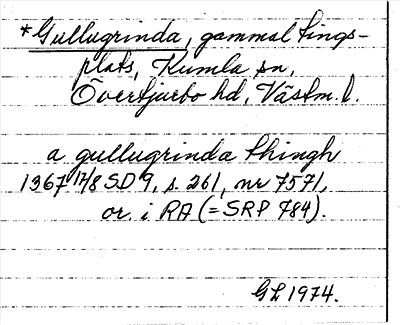 *Gullugrinda, gammal tings-
plats, Kumla sn,
Övertjurbo hd, Västm. l.
a gullugrinda thingh
1367 17/8 SD 9, s. 261, nr 7571,
or. i RA (= SRP 784).
GL 1974.